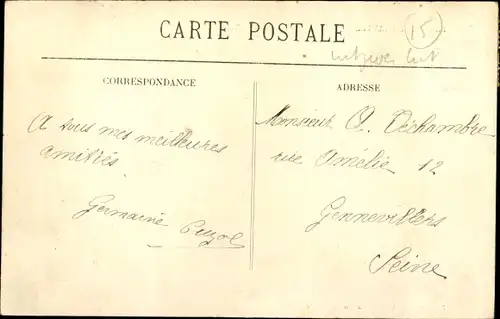 CARTE POSTALE
15
CORRESPONDANCE
ADRESSE
A tous mes meilleures
amitiés
Germaine
Monsieur A. Déchambre
rue Amélie 12
Gennevilliers
Seine